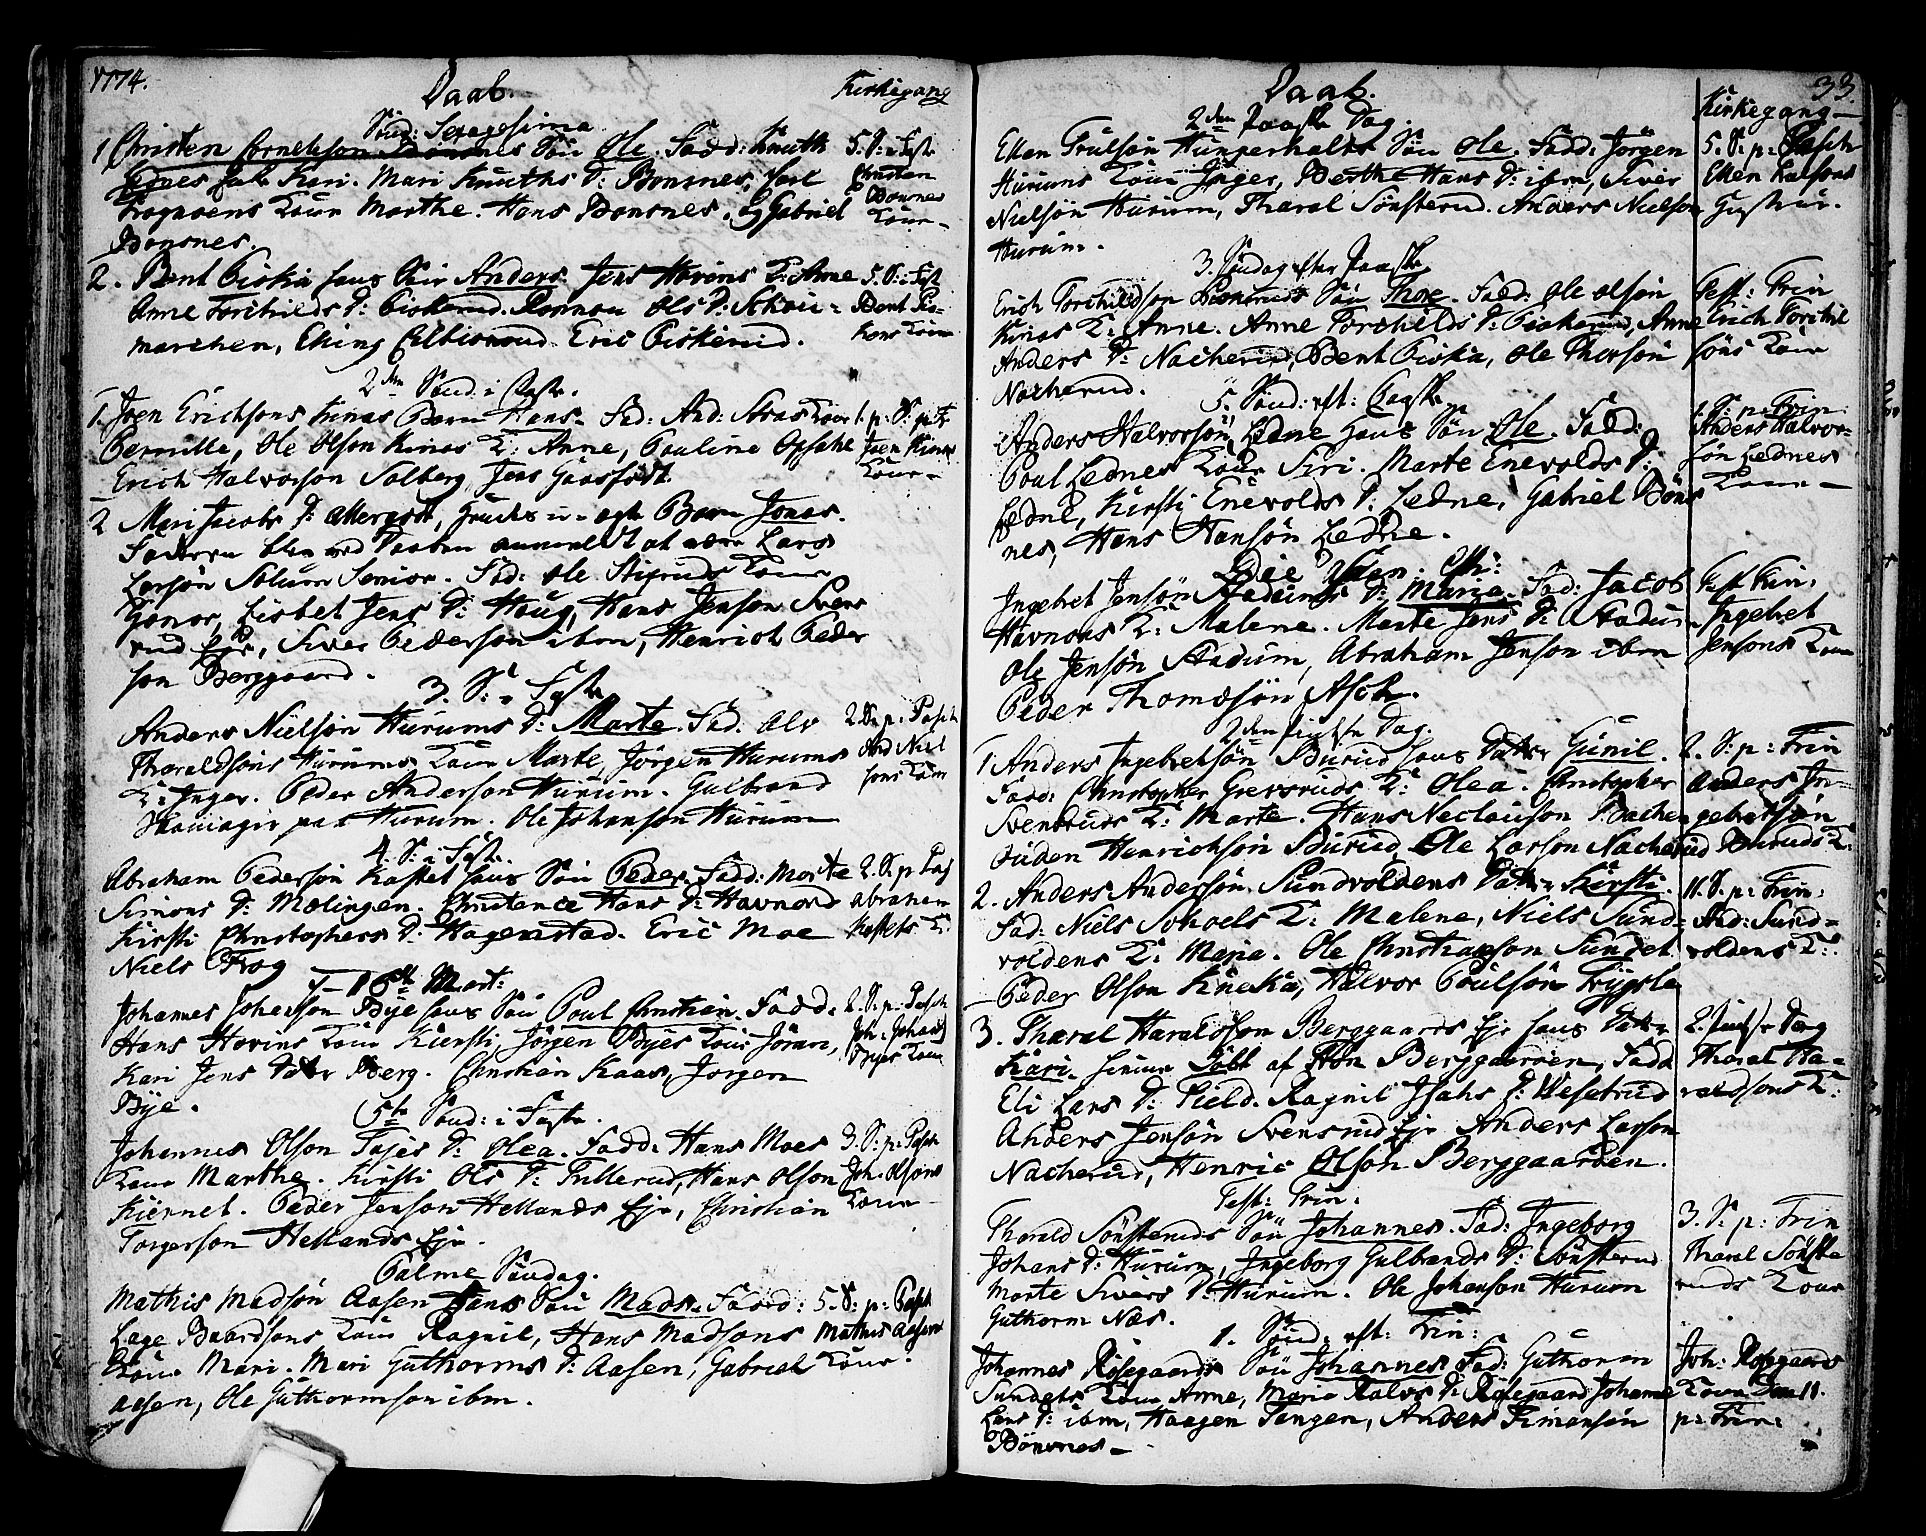 1774.
Daab.
Kirkegang
Sönd: Sexagesima
1 Christen Cornelison Bönsnes Sön Ole. Fadd: Knuth
Kari. Mari Knuths D: Bonsnes, Carl
Frognoens Kone Marthe. Hans Bonsnes, og Gabriel
Bonsnes.
5. S: i Fast:
Christen
Bonsnes
Kone
2. Bent Piska hans Sön Anders. Jens Hovins K: Anne
Anne Torchilds D: Piskerud. Ols D: Schou-
marchen, Eric Piskerud.
5. S: i Fast
Bent Pis-
kens Kone
2den Sönd: i Faste.
1. Joen Erichsons Kinas Barn Hans. Fad: And: Aasas Kone
Pernille, Ole Olson Kinas K: Anne, Pauline Opsahl
Erich Halvorson Solberg, Jens Gaasfödt.
1. p: S. p: Tr
Joen Kinas
Kone
2 Mari Jacobs D: uægte Barn Jonas.
Faderen blev ved Daaben anmeldt at være Lars
Larsön Solum Senior. Fad: Ole Stigruds Kone
Gonor, Lisbet Jens D: Houg, Hans Jenson Svens
rud Eje, Siver Pederson ibm, Henrich Peder
son Berggaard.
3. S: i Faste
Anders Nielson Hurums D: Marte. Fad: Olv
Tharaldsons Hurums Kone Marte, Jörgen Hurums
K: Inger. Peder Anderson Hurum. Gulbrand
paa Hurum. Ole Johanson Hurum
2. S. p: Pasch
And Niel
sons Kone
4. S: i Fast.
Abraham Pederson Kastet hans Sön Peder. Fadd: Marte
Simons D: Molingen. Christence Hans D: Havnord
Kirsti Christophers D: Hagenstad. Eric Moe
Niels Frog
2. S. p Pas
Abraham
Kastets K:
16de Mart:
Johannes Johanson Bye hans Sön Poul Christian. Fadd:
Hans Hovins Kone Kiersti, Jörgen Byes Kone Jöran,
Kari Jens Datter Berg. Christian Kaas, Jorgen
Bye.
2. S: p: Pasch
Joh: Johans
Byes Kone
5te Sönd: i Faste.
Johannes Olson D: Olea. Fadd: Hans Moes
Kone Marthe. Kirsti Ols D: Fullerud, Hans Olson
Kiernet. Peder Jenson Hellands Eje, Christian
Torgerson Hellands Eje.
3. S: p: Pasch
Joh. Olsons
Kone
Palme Söndag.
Mathis Madsön Aasen Hans Sön Mads. Fadd:
Lage Baardsons Kone Ragnil, Hans Madsons
Kone Mari. Mari Guthorms D: Aasen, Gabriel
Aasen, Ole Guthormson ibm.
5. S: p: Pasch
Mathis Aasens
Kone.
33.
Daab.
Kirkegang
2den Paaske Dag.
Ellen Sön Ole. Fadd: Jörgen
Hurums Kone Inger, Berthe Hans D: ibm, Siver
Nielsön Hurum, Tharal Sönsterud. Anders Nielson
Hurum.
5. S: p: Pasch
3. Söndag efter Paaske
Erich Torchildson Piskeruds Sön Thore. Fadd: Ole Olsön
Kinas K: Anne. Anne Torchilds D: Piskerud, Anne
Anders D: Nacherud, Bent Piska, Ole Thorson
Nacherud.
Fest: Trin
Erich Torchil
söns Kone
5. Sönd: eft: Paaske
Anders Halvorsön Ledne hans Sön Ole. Fadd:
Poul Lednes Kone Siri. Marte Enevolds D:
Ledne, Kirsti Enevolds D: Ledne, Gabriel Böns
nes, Hans Hansön Ledne.
1. S: p: Trin:
Anders Halvor-
sön Lednes
Kone
Ingebret Jensön Stadums D: Maria. Fad: Jacob
Havnors K: Malene. Marte Jens D: Stadum
Ole Jensön Stadum, Abraham Jenson ibm
Peder Thomesön Ask.
Fest Trin:
Ingebret
Jensons Kone
2den Pintse Dag.
1 Anders Ingebretsön Burud hans Datter Gunil.
Fadd: Christopher Grevsruds K: Olea. Christopher
Svensruds K: Marte. Hans Neclauson
Auden Henrichsön Burud, Ole Larson Nacherud
2. S: p: Trin
Anders In-
gebretsön
Buruds K:
2. Anders Andersön Sundvoldens Datter Kirsti.
Fad: Niels K: Malene, Niels Sund-
voldens K: Maria. Ole Christianson Sundet
Peder Olson Kneka, Halvor Poulsön Trygsla
11. S: p: Trin:
And: Sund-
voldens K:
3. Tharal Haraldson Berggaards Eje hans Datter
Kari. af Berggaarden, Fadd
Eli Lars D: Field. Ragnil Isachs D: Vesetrud
Anders Jensön Svensrud Eje Anders Larson
Nacherud, Henric Olson Berggaarden.
2. Pintse Dag
Tharal Ha-
raldsons K:
Fest: Trin:
Tharald Sönsteruds Sön Johannes. Fad: Ingeborg
Johans D: Hurum, Ingeborg Gulbrands D: Sönsterud
Marte Sivers D: Hurum. Ole Johanson Hurum
Guthorm Næs.
3. S: p: Trin
Tharal Sönste
ruds Kone
1. Sönd: eft: Trin:
Johannes Rösegaards Sön Johannes Fad: Guthorm
Sundets Kone Anne, Maria Halvs D: Rösegaard Johanne
Lars D: ibm, Haagen Tangen, Anders Simonsön
Bönsnes
Joh: Rösegaards
Kone Dom 11.
p: Trin: